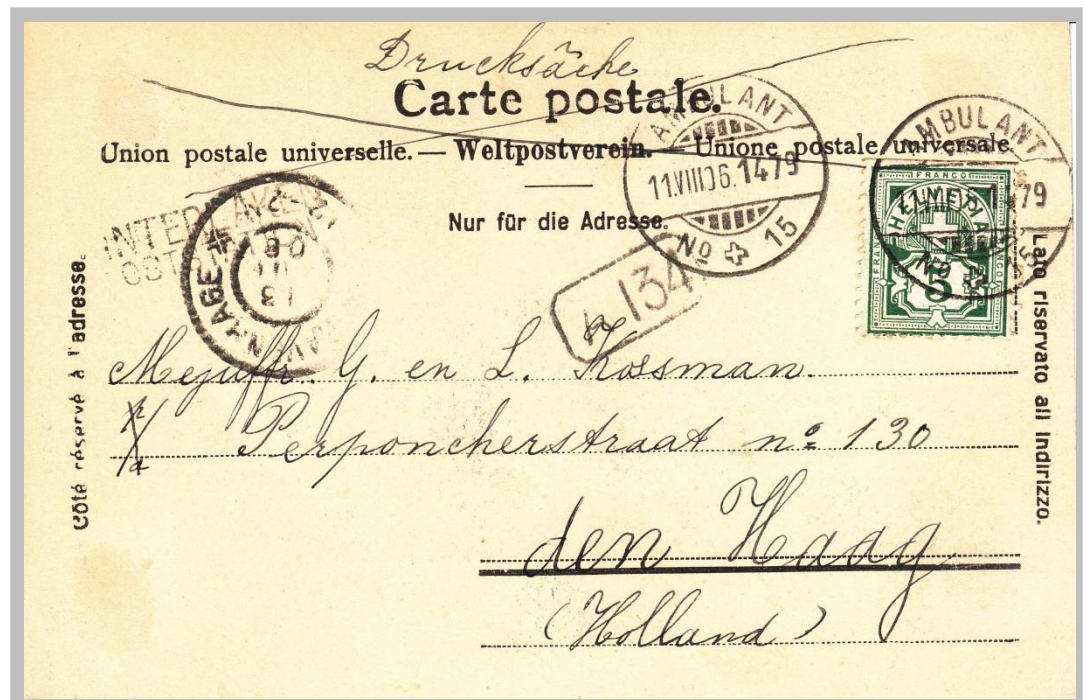 Drucksäche
Carte postale.
Union postale universelle. — Weltpostverein. — Unione postale universale.
Nur für die Adresse.
AMBULANT
11.VIII 06. 1479
No 15
AMBULANT
1479
No 15
FRANCO
HELVETIA
5
INTERLAKEN
OST
134
Côté réservé à l'adresse.
Lato riservato all indirizzo.
Mejuffr. G. en L. Kossman.
Perponcherstraat nº 130
den Haag
(Holland)